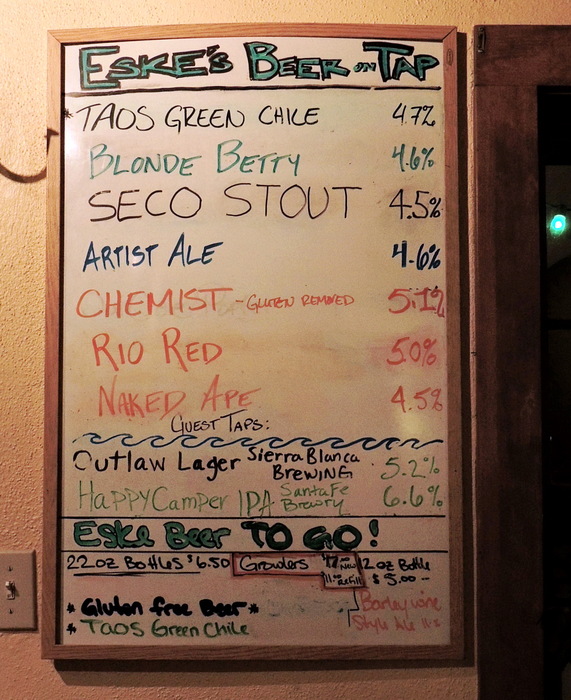 ESKE'S BEER ON TAP
*TAOS GREEN CHILE 4.7%
BLONDE BETTY 4.6%
SECO STOUT 4.5%
ARTIST ALE 4.6%
CHEMIST - GLUTEN REMOVED 5.1%
RIO RED 5.0%
NAKED APE 4.5%
GUEST TAPS:
Outlaw Lager Sierra Blanca BREWING 5.2%
HAPPY Camper IPA Santa Fe Brewry 6.6%
Eske Beer TO GO!
22 oz Bottles $6.50 Growlers NEW 12 oz Bottle
11.00 Refill $5.00 --
* Gluton free Beer * Barleywine
* TAOS Green Chile Style Ale